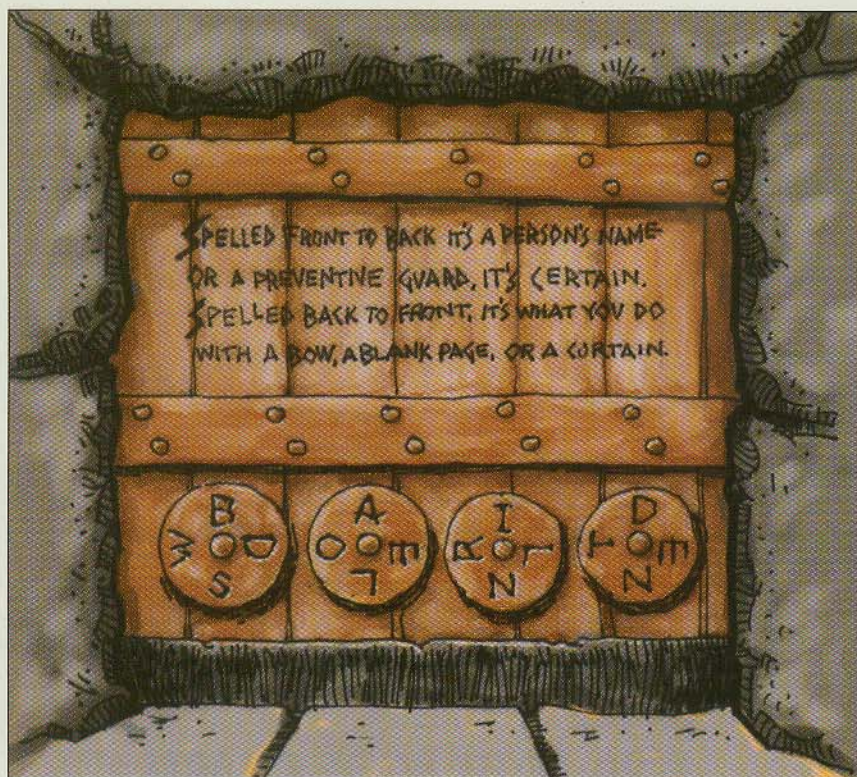 SPELLED FRONT TO BACK IT'S A PERSON'S NAME
OR A PREVENTIVE GUARD, IT'S CERTAIN.
SPELLED BACK TO FRONT, IT'S WHAT YOU DO
WITH A BOW, A BLANK PAGE, OR A CURTAIN.
B A I D
W D O E R L E
S L N N